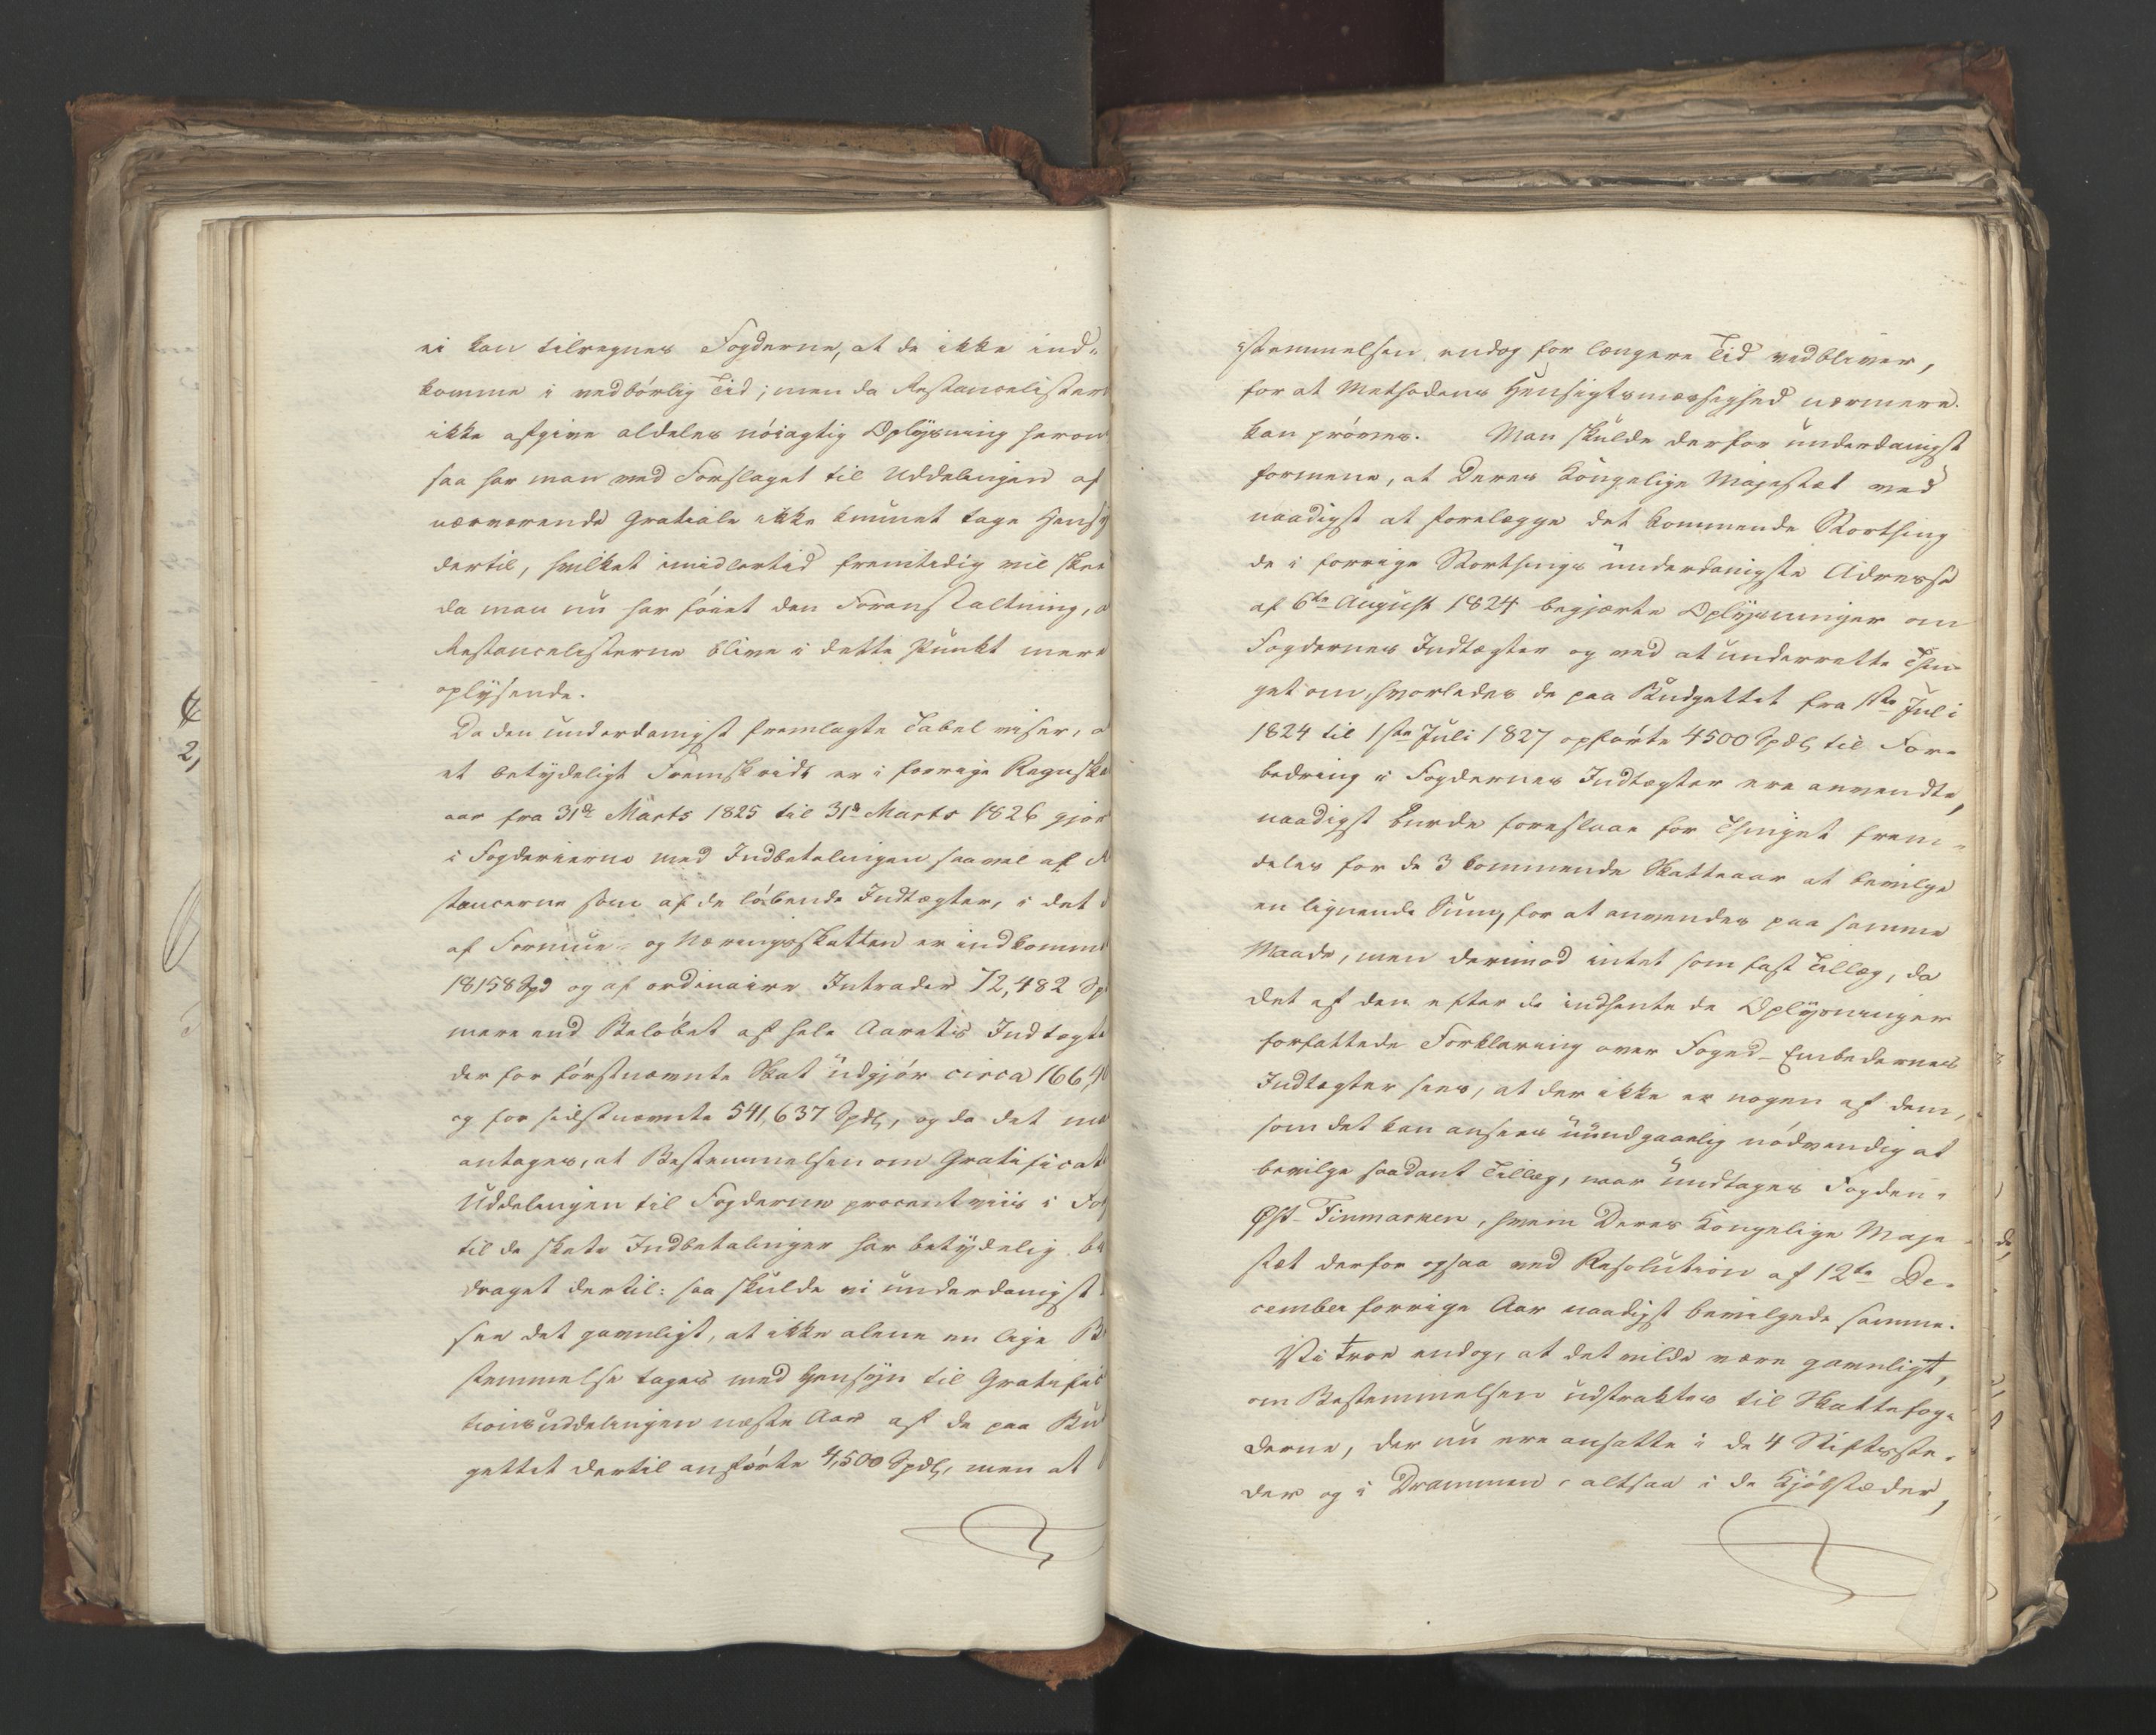 ei kan tilregnes Fogderne, at de ikke ind-
komme i vedbörlig Tid; men da Restancelister
ikke afgive aldeles nöiagtig Oplysning herom
saa har man ved Forslaget til Uddelingen af
nærværende Gratiale ikke kunnet tage Hensy
dertil, hvilket imidlertid fremtidig vil skee
da man nu har föiet den Foranstaltning, a
Restancelisterne blive i dette Punkt mere
oplysende.
Da den underdanigst fremlagte Tabel viser, a
et betydeligt Fremskridt er i forrige Regnska
aar fra 31te Marts 1825 til 31te Marts 1826 gjor
i Fogderierne med Indbetalingen saavel af R
stancerne som af de löbende Indtægter, i det
af Formue- og Næringsskatten er indkomm
18158 Spd og af ordinaire Intrader 72,482 Sp
mere end Belöbet af hele Aarets Indtægt
der for förstnævnte Skat udgjör circa 166,
og for sidstnævnte 541,637 Spdlr, og da det maa
antages, at Bestemmelsen om Gratificat
Uddelingen til Fogderne procentviis i Fo
til de skete Indbetalinger har betydelig bi
draget dertil: saa skulde vi underdanigst
see det gavnligt, at ikke alene en lige B
stemmelse tages med Hensyn til Gratific
tionsuddelingen næste Aar af de paa Bud
gettet dertil anförte 4,500 Spdlr, men at
stemmelsen endog for længere Tid vedbliver,
for at Methodens Hensigtsmæssighed nærmere
kan pröves. Man skulde derfor underdanigst
formene, at Deres Kongelige Majestæt ved
naadigst at forelægge det kommende Storthing
de i forrige Storthings underdanigste Adresse
af 6te August 1824 begjærte Oplysninger om
Fogdernes Indtægter og ved at underrette Thin-
get om, hvorledes de paa Budgettet fra 1ste Juli
1824 til 1ste Juli 1827 opförte 4500 Spdlr til For-
bedring i Fogdernes Indtægter ere anvendte,
naadigst burde foreslaae for Thinget frem-
deles for de 3 kommende Skatteaar at bevilge
en lignende Sum, for at anvendes paa samme
Maade, men derimod intet som fast Tillæg, da
det af den efter de indhentede Oplysninger
forfattede Forklaring over Foged-Embedernes
Indtægter sees, at der ikke er nogen af dem,
som det kan ansees uundgaaelig nödvendig at
bevilge saadant Tillæg, naar undtages Fogden i
Øst-Finmarken, hvem Deres Kongelige Maje-
stæt derfor ogsaa ved Resolution af 12te De-
cember forrige Aar naadigst bevilgede samme.
Vi troe endog, at det vilde være gavnligt,
om Bestemmelsen udstraktes til Skattefog-
derne, der nu ere ansatte i de 4 Stiftsste-
der og i Drammen, altsaa i de Kjöbstæder,